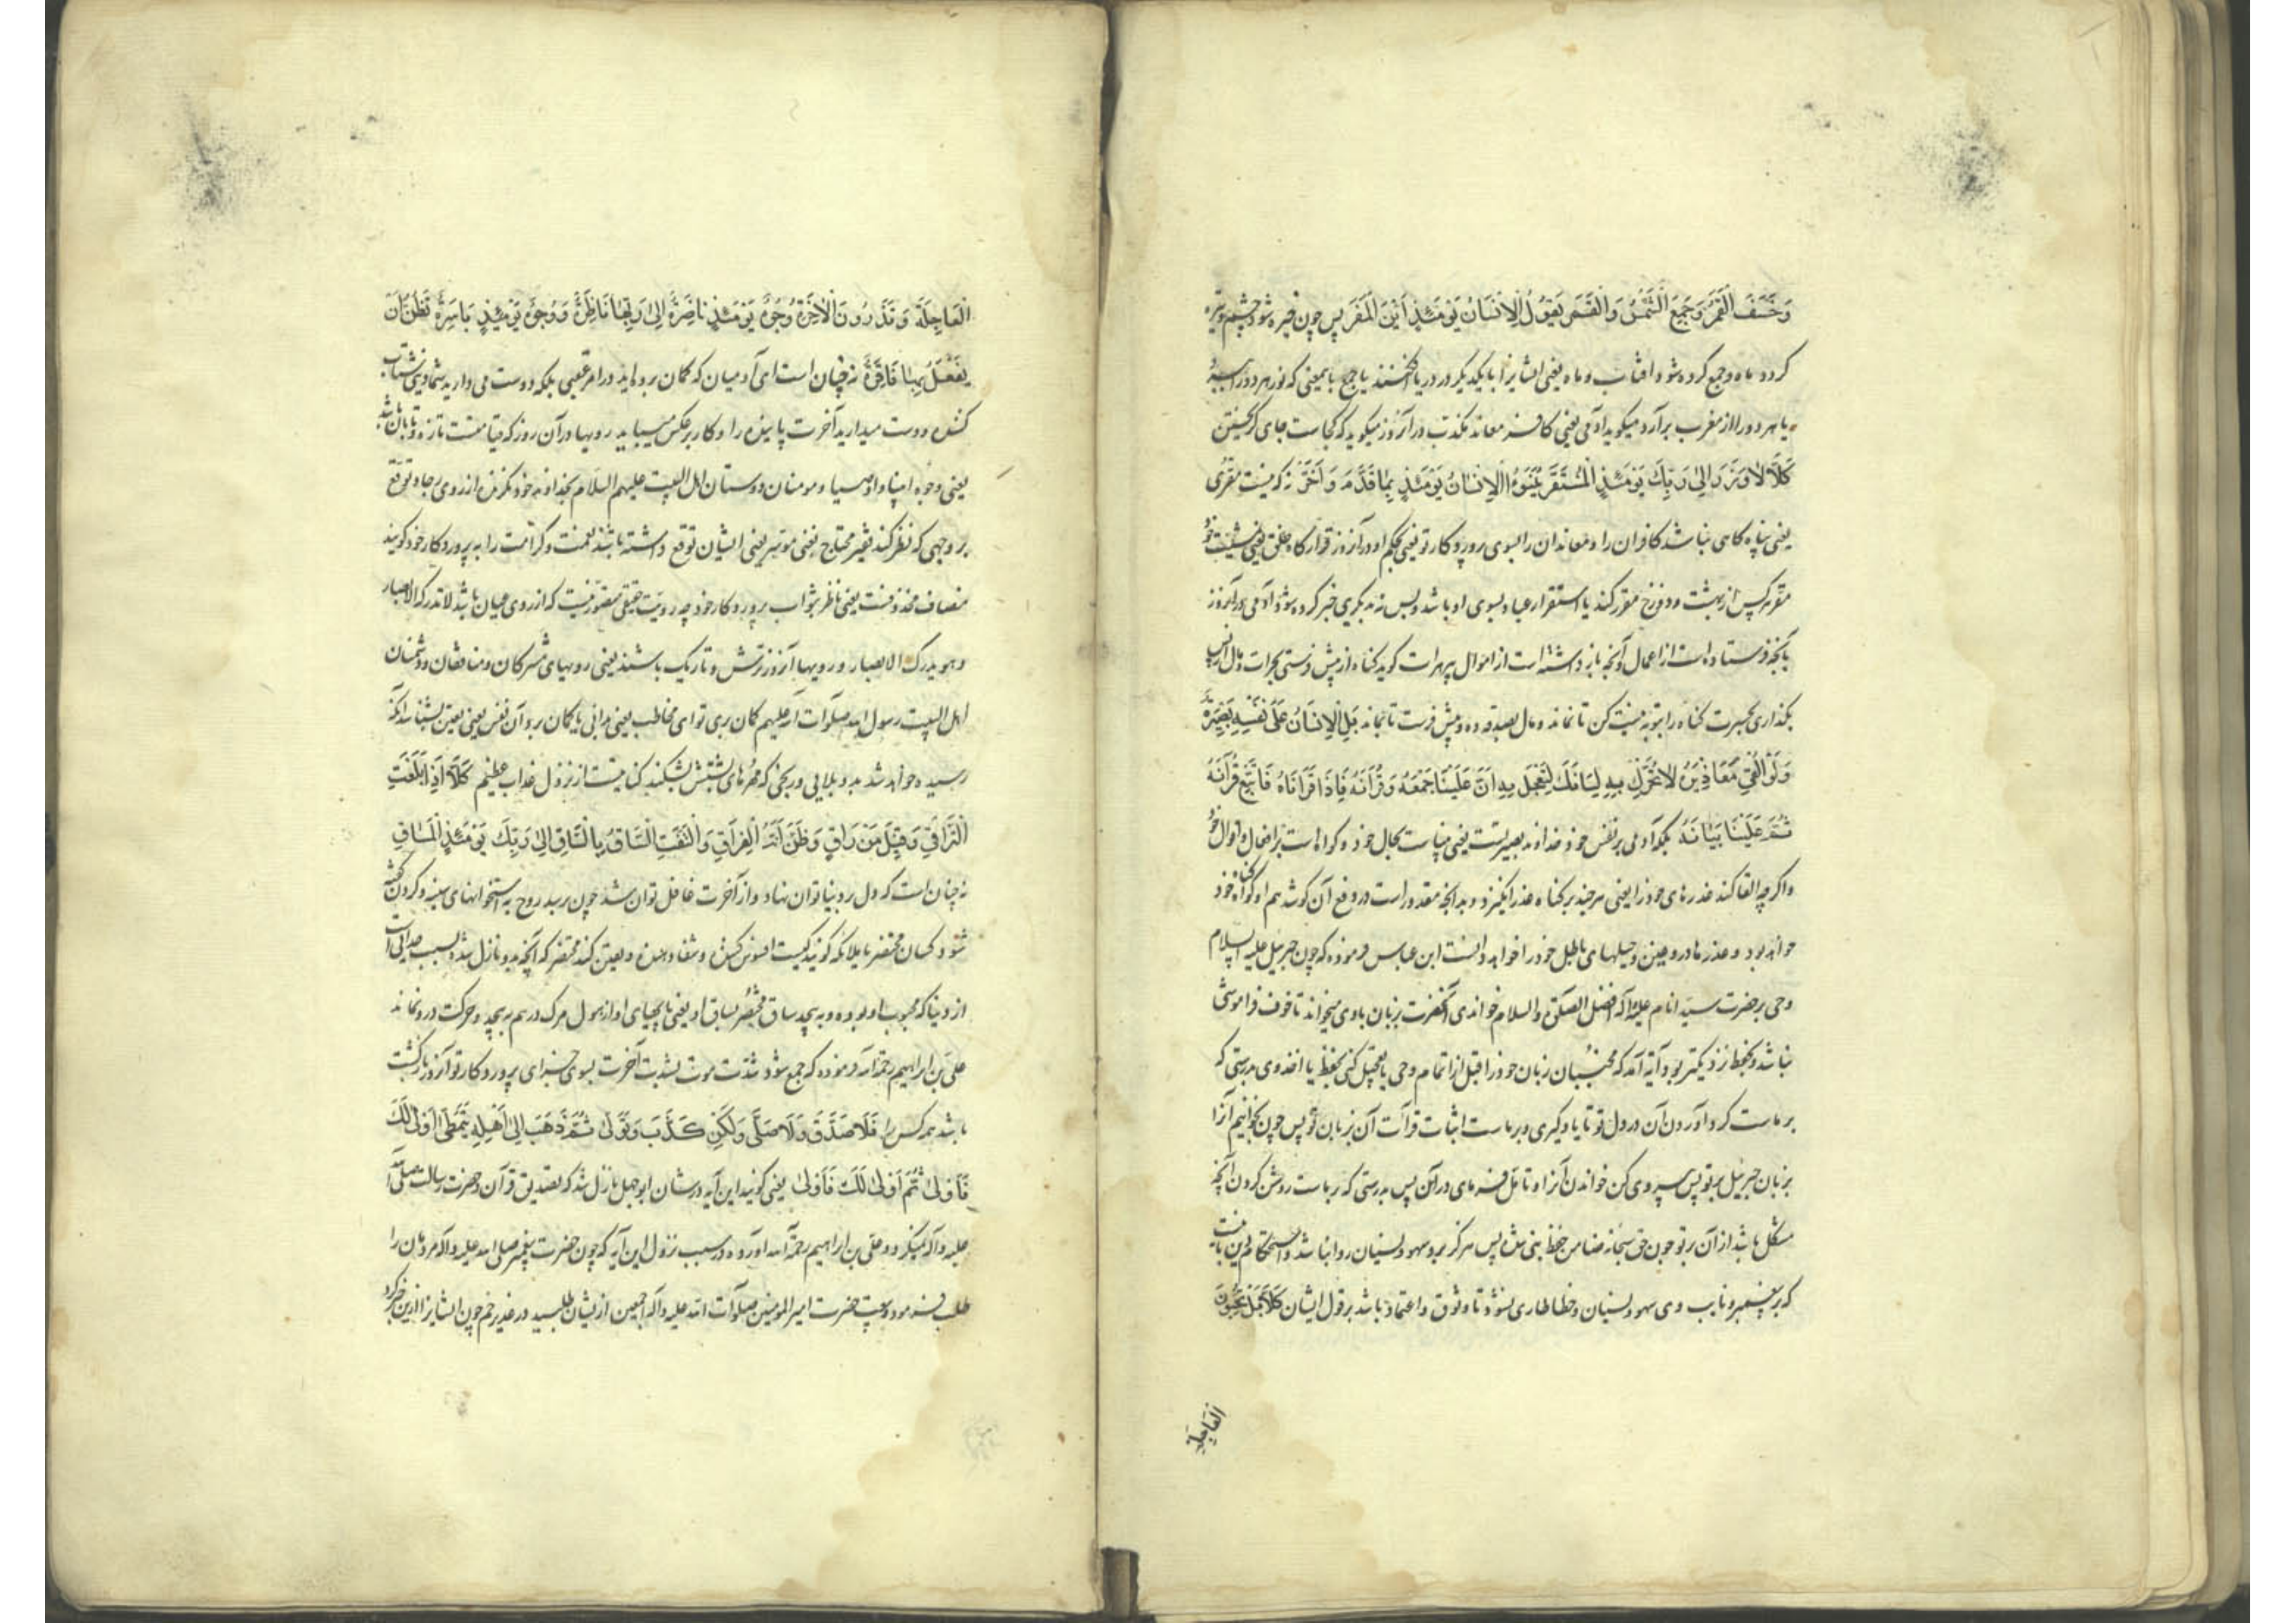 وَخَسَفَ الْقَمَرُ وَجُمِعَ الشَّمْسُ وَالْقَمَرُ يَقُولُ الْاِنْسَانُ يَوْمَئِذٍ اَيْنَ الْمَفَرُّ پس چون خیره شود چشم و تیره
کردد ماه و جمع کرده شود افتاب و ماه یعنی ایشانرا با یکدیکر در دریا افکنند یا جمع بایمعنی که نور هر دو را
یا هر دو را از مغرب برآرد میکوید آدمی یعنی کافر معاند مکذب در آنروز میکوید که کجاست جای کریختن
كَلَّا لَا وَزَرَ اِلَى رَبِّكَ يَوْمَئِذٍ الْمُسْتَقَرُّ يُنَبَّؤُا الْاِنْسَانُ يَوْمَئِذٍ بِمَا قَدَّمَ وَاَخَّرَ نه که نیست مفری
یعنی پناه کاهی نباشد کافران را و معاندان را بسوی پروردکار تو یعنی بحکم او در آنروز قرارکاه خلق یعنی
مقر هر کس از بهشت و دوزخ مقرر کند یا استقرار عباد بسوی او باشد و بس نه بدیکری خبر کرده شود آدمی در آنروز
بآنچه فرستاده است از اعمال و آنچه باز داشته است از اموال کوید کناه از پیش فرستی بجرات و مال از پس
بکذاری بحسرت کناه را بتوبه نیست کن تا نماند و مال بصدقه ده و پیش فرست تا بماند بَلِ الْاِنْسَانُ عَلَى نَفْسِهِ بَصِيْرَةٌ
وَلَوْ اَلْقَى مَعَاذِيْرَهُ لَا تُحَرِّكْ بِهِ لِسَانَكَ لِتَعْجَلَ بِهِ اِنَّ عَلَيْنَا جَمْعَهُ وَقُرْاٰنَهُ فَاِذَا قَرَاْنَاهُ فَاتَّبِعْ قُرْاٰنَهُ
ثُمَّ عَلَيْنَا بَيَانَهُ بلکه آدمی بر نفس خود خداوند بصیرتست یعنی بیناست بحال خود و کواه است بر افعال و اقوال خود
و اکرچه القا کند عذرهای خود را یعنی هر چند بر کناه عذر انکیزد و بدانچه مقدور است در دفع آن کوشد هم او کواه خود
خواهد بود و عذرها دروغین و حیلهای باطل خود را خواهد دانست ابن عباس فرموده که چون جبرئیل علیه السلام
وحی بر حضرت سید انام علیه و آله افضل الصلوة و السلام خواندی آنحضرت بزبان با وی میخواند تا خوف فراموشی
نباشد و بحفظ نزدیکتر بود آیه آمد که مجنبان زبان خود را قبل از اتمام وحی یا تعجیل کنی بحفظ یا اخذ وی بدرستی که
بر ماست کرد آوردن آن در دل تو تا یاد کیری و بر ماست اثبات قرآت آن بزبان تو پس چون بخوانیم آنرا
بزبان جبرئیل بر تو پس پیروی کن خواندن آنرا و تامل فرمای در آن پس بدرستی که بر ماست روشن کردن آنچه
مشکل باشد از آن بر تو چون حق سبحانه ضامن حفظ نبی شد پس هرکز برو سهو و نسیان روا نباشد و استحکام دین بآنست
که بر پیغمبر و نایب وی سهو و نسیان و خطا طاری نشود تا وثوق و اعتماد باشد بر قول ایشان كَلَّا بَلْ تُحِبُّوْنَ
العاجلة
الْعَاجِلَةَ وَتَذَرُوْنَ الْاٰخِرَةَ وُجُوْهٌ يَوْمَئِذٍ نَاضِرَةٌ اِلَى رَبِّهَا نَاظِرَةٌ وَوُجُوْهٌ يَوْمَئِذٍ بَاسِرَةٌ تَظُنُّ اَنْ
يُفْعَلَ بِهَا فَاقِرَةٌ نه چنان است ای آدمیان که کمان برده‌اید در امر عقبی بلکه دوست می دارید شما دنیای شتاب
کننده و دست میدارید آخرت پاینده را و کار برعکس میباید رویها در آن روز که قیامتست تازه و تابان باشد
یعنی وجوه انبیا و اوصیا و مومنان دوستان اهل البیت علیهم السلام بخداوند خود نکرنده از روی رجا و توقع
بر وجهی که نظر کند فقیر محتاج بغنی موسر یعنی ایشان توقع داشته باشند نعمت و کرامت را به پروردکار خود کویند
مضاف محذوفست یعنی ناظر بثواب پروردکار خود چه رویت حقیقی متصور نیست که از روی عیان باشد لا تدرکه الابصار
و هو یدرک الابصار و رویها آنروز ترش و تاریک باشند یعنی رویهای مشرکان و منافقان و دشمنان
اهل البیت رسول الله صلوات الله علیهم کمان بری تو ای مخاطب یعنی بدانی یا کمان برد آن نفس یعنی یقین بشناسد آنکه
رسیده خواهد شد بدو بلایی و رنجی که مهرهای پشتش بشکند کنایتست از نزول عذاب عظیم كَلَّا اِذَا بَلَغَتِ
التَّرَاقِيَ وَقِيْلَ مَنْ رَاقٍ وَظَنَّ اَنَّهُ الْفِرَاقُ وَالْتَفَّتِ السَّاقُ بِالسَّاقِ اِلَى رَبِّكَ يَوْمَئِذٍ الْمَسَاقُ
نه چنان است که دل بر دنیا توان نهاد و از آخرت غافل توان شد چون برسد روح به استخوانهای سینه و کردن کفته
شود کسان محتضر یا ملائکه کویند کیست افسون کننده و شفا دهنده و یقین کند محتضر که آنچه بدو نازل شده سبب جداییست
از دنیا که محبوب او بوده و به پیچد ساق محتضر بساق او یعنی پاهای او از هول مرک در هم به پیچد و حرکت درو نماند
علی بن ابراهیم رحمه الله فرموده که جمع شود شدت موت بشدت آخرت بسوی جزای پروردکار تو آنروز بازکشت
باشد هر کس را فَلَا صَدَّقَ وَلَا صَلَّى وَلَكِنْ كَذَّبَ وَتَوَلَّى ثُمَّ ذَهَبَ اِلَى اَهْلِهِ يَتَمَطَّى اَوْلَى لَكَ
فَاَوْلَى ثُمَّ اَوْلَى لَكَ فَاَوْلَى یعنی کویند این آیه در شان ابوجهل نازل شد که تصدیق قرآن و حضرت رسالت صلی الله
علیه و آله نمیکرد و علی بن ابراهیم رحمة الله آورده در سبب نزول این آیه که چون حضرت پیغمبر صلی الله علیه و آله مردمان را
طلب فرمود و بیعت حضرت امیر المومنین صلوات الله علیه و آله اجمعین از یشان طلبید در غدیر خم چون ایشانرا ازین خبر کرد